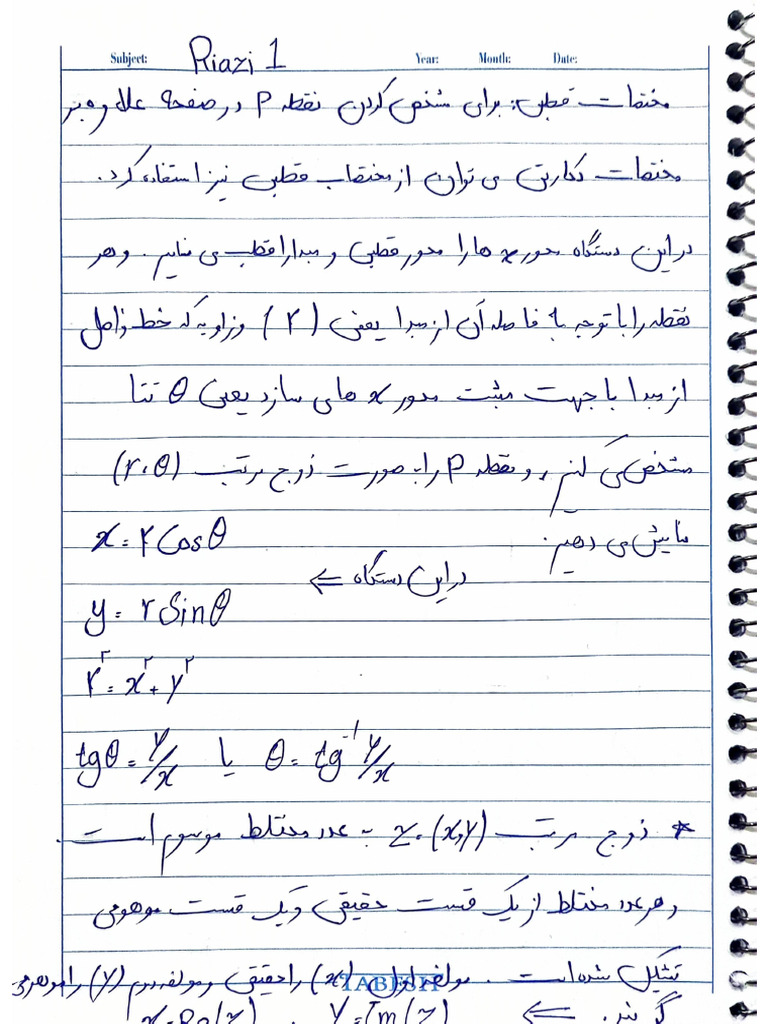 Subject: Riazi 1 Year: Month: Date:
مختصات قطبی: برای مشخص کردن نقطه P در صفحه علاوه بر
مختصات دکارتی می توان از مختصات قطبی نیز استفاده کرد.
در این دستگاه محور x ها را محور قطبی و مبدا را قطب می نامیم. و هر
نقطه را با توجه به فاصله آن از مبدا یعنی (r) و زاویه که خط واصل
از مبدا با جهت مثبت محور x ها می سازد یعنی θ تتا
مشخص می کنیم و نقطه P را به صورت زوج مرتب (r، θ)
نمایش می دهیم.
در این دستگاه ⇐
x = r Cos θ
y = r Sin θ
r² = x² + y²
tg θ = y/x یا θ = tg⁻¹ y/x
* زوج مرتب z = (x, y) به عدد مختلط موسوم است.
و هر عدد مختلط از یک قسمت حقیقی و یک قسمت موهومی
تشکیل شده است. مولفه اول (x) را حقیقی و مولفه دوم (y) را موهومی
TABESH
گویند. ⇐ x = Re(z) . y = Im(z)